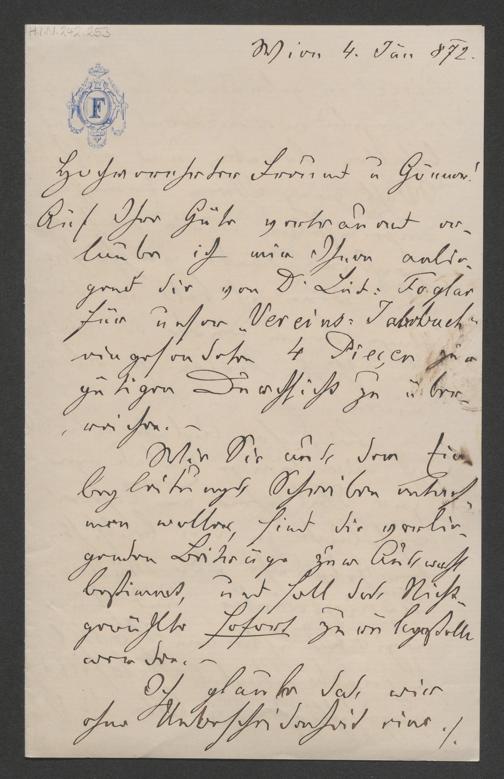 H.I.N. 242.253
F
Wien 4. Jän 872.
Hochverehrter Freund u Gönner!
Auf Ihre Güte vertrauent er-
laube ich mir Ihnen anlie-
gent die von Dr Lud: Foglar
für unser „Vereins: Jahrbuch"
eingesendeten 4 Pieçen zur
gütigen Durchsicht zu über-
reichen. –
Wie Sie aus dem Ein
begleitungs Schreiben entneh-
men wollen, sind die vorlie-
genden Beiträge zur Auswahl
bestimmt, und soll das Nicht-
gewählte sofort zurückgestellt
werden. –
Ich glaube das wir
ohne Unbescheidenheit eine ./.